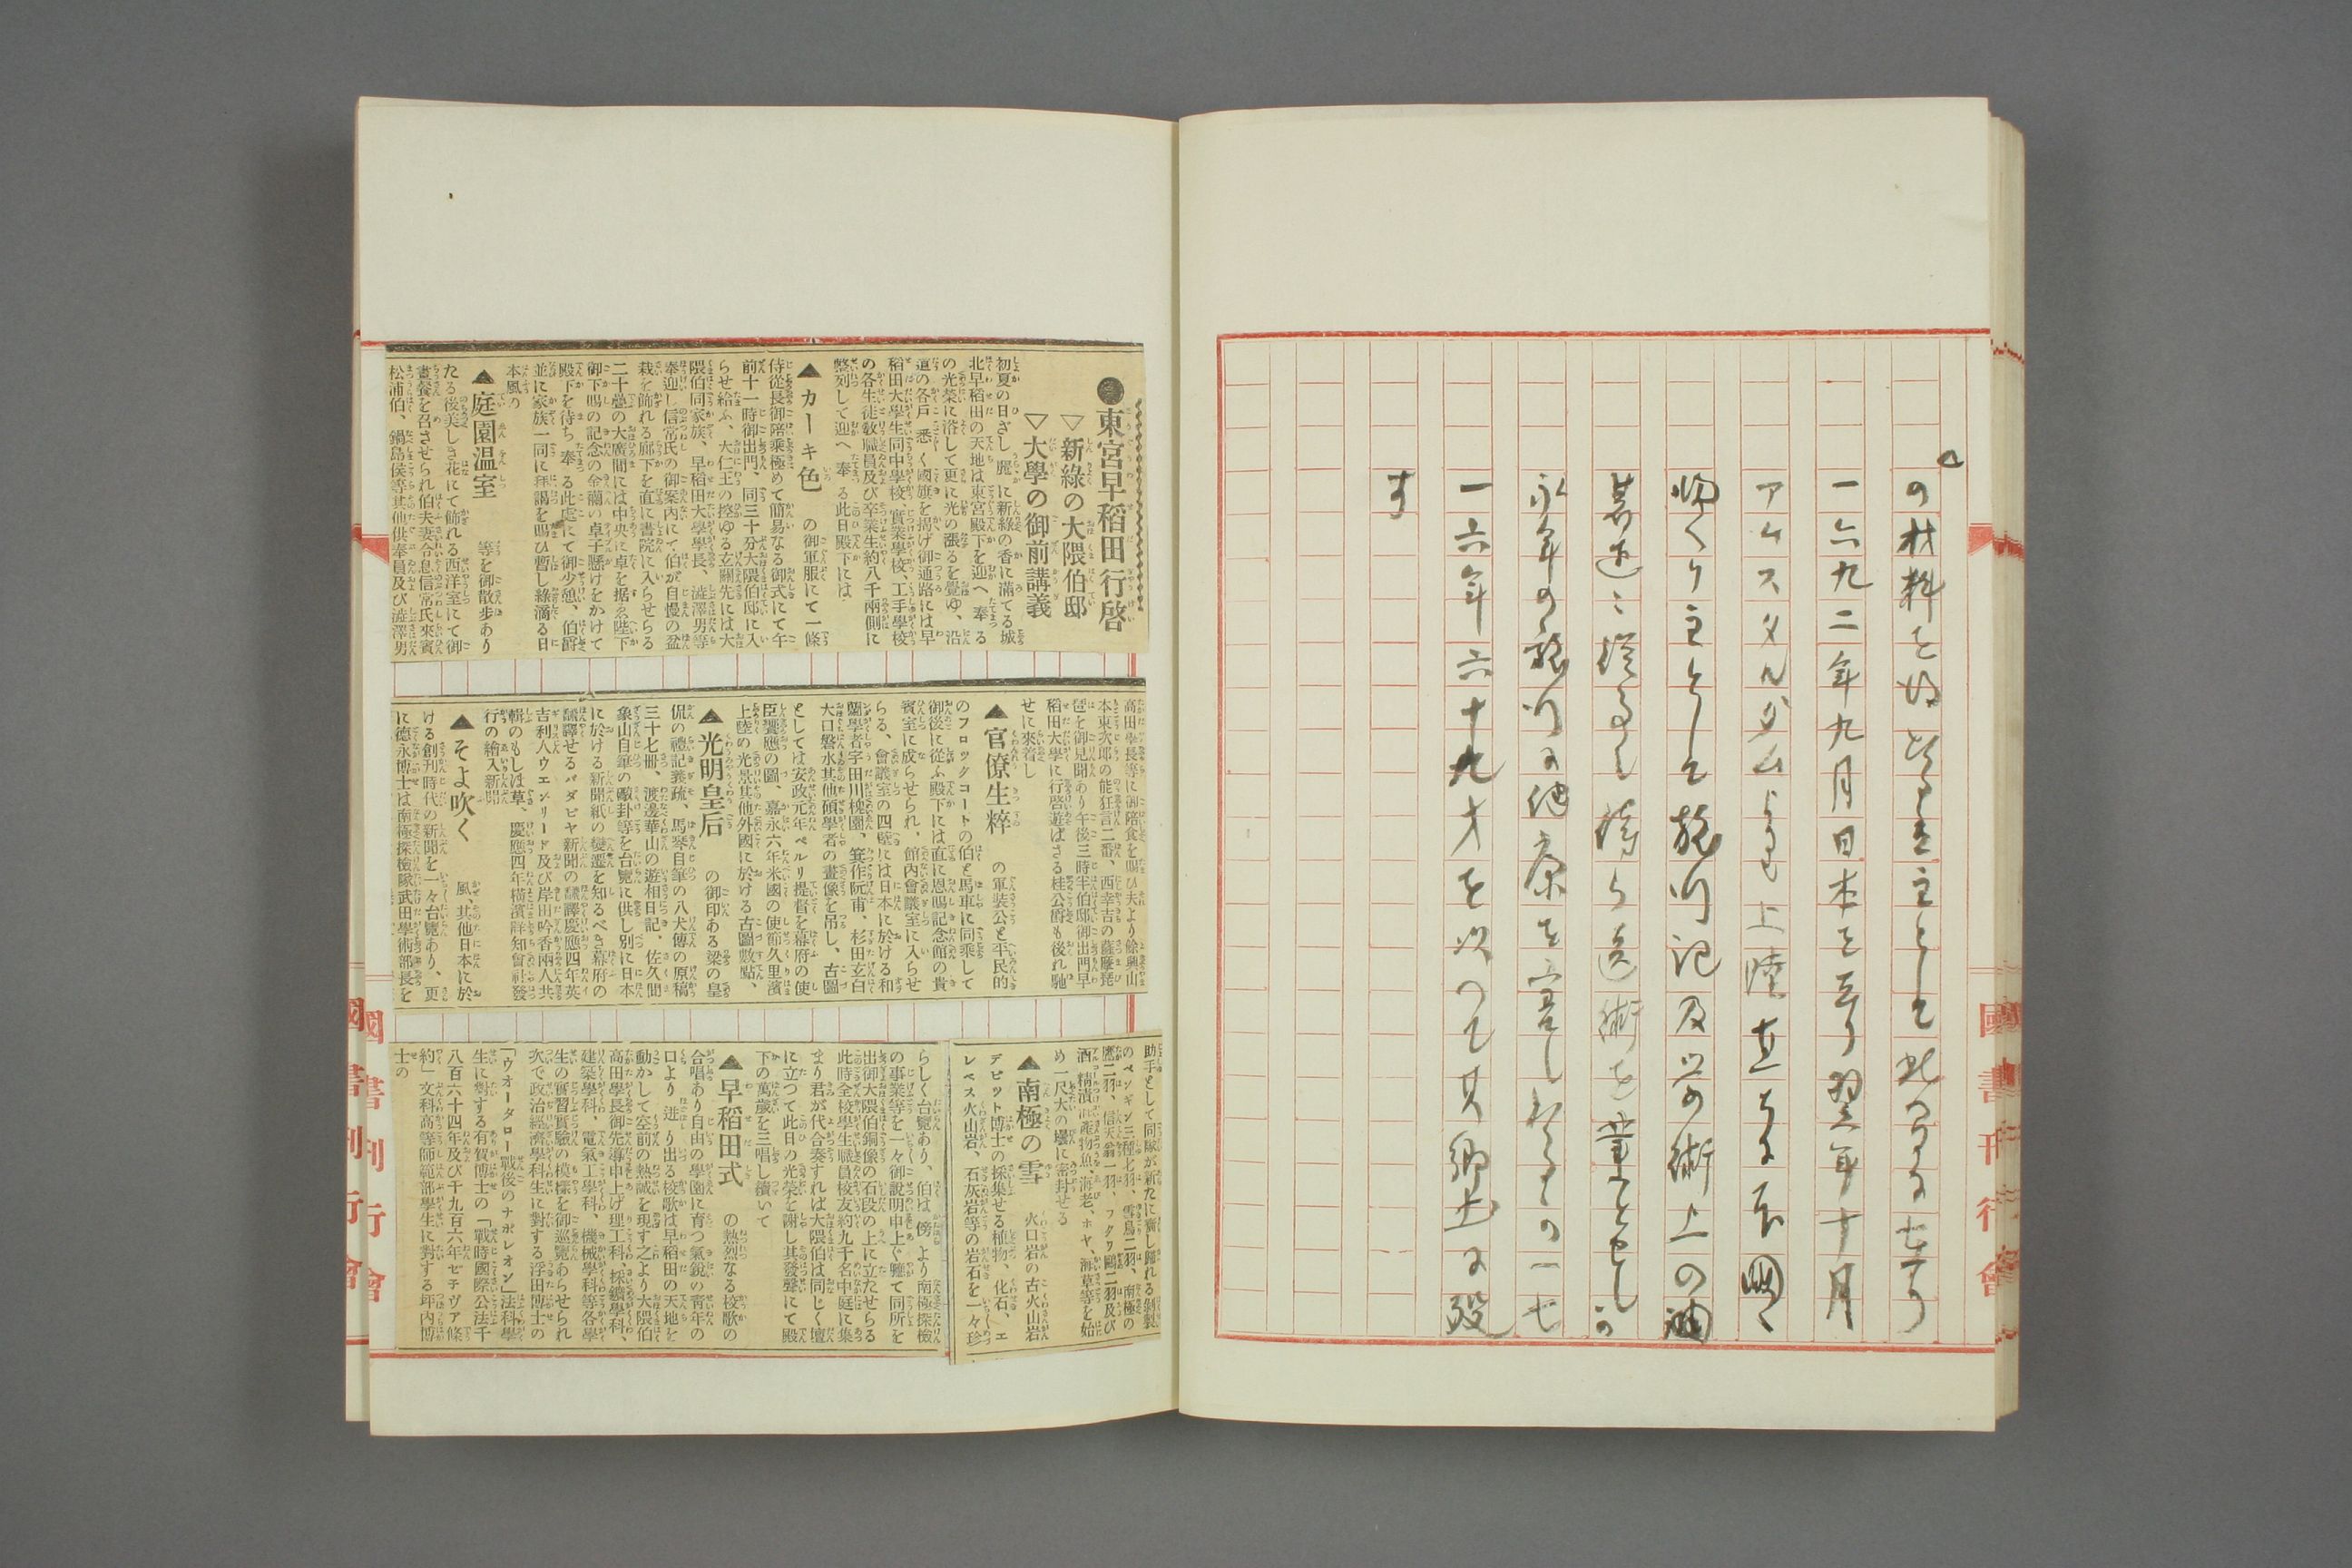 の材料を
一六九二年九月日本を去り翌年十月
アムスタルダムよりも上陸
主として旅行記及
永年の旅行の
一六年六十九才を以つて其郷土に歿
す
國書刊行會
●東宮早稲田行啓
▽新綠の大隈伯邸
▽大學の御前講義
初夏の日ざし麗に新綠の香に滿てる城
北早稲田の天地は東宮殿下を迎へ奉る
の光榮に浴して更に光の漲るを覺ゆ、沿
道の各戸悉く國旗を揭げ御通路には早
稲田大學生同中學校、實業學校、工手學校
の各生徒敎職員及び卒業生約八千兩側に
整列して迎へ奉る此日殿下には
▲カーキ色 の御軍服にて一條
侍從長御陪乘極めて簡易なる御式にて午
前十一時御出門、同三十分大隈伯邸に入
らせ給ふ、大仁王の控ゆる玄關先には大
隈伯同家族、早稲田大學學長、澁澤男等
奉迎し信常氏の御案内にて伯が自慢の盆
栽を飾れる廊下を直に書院に入らせらる
二十疊の大廣間には中央に卓を据ゑ陛下
御下賜の記念の金繭の卓子懸けをかけて
殿下を待ち奉る此處にて御少憩、伯爵
並に家族一同に拜謁を賜ひ暫し綠滴る日
本風の
▲庭園温室 等を御散步あり
たる後美しき花にて飾れる西洋室にて御
晝餐を召させられ伯夫妻令息信常氏來賓
松浦伯、鍋島侯等其他供奉員及び澁澤男
高田學長等に御陪食を賜ひ夫より餘興山
本東次郎の能狂言二番、西幸吉の薩摩琵
琶を御見聞あり午後三時半伯邸御出門早
稲田大學に行啓遊ばさる桂公爵も後れ馳
せに來着し
▲官僚生粹 の軍裝公と平民的
のフロックコートの伯と馬車に同乘して
御後に從ふ殿下には直に恩賜記念館の貴
賓室に成らせられ、館内會議室に入らせ
らる、會議室の四壁には日本に於ける和
蘭學者宇田川槐園、箕作阮甫、杉田玄白
大口磐水其他碩學者の畫像を吊し、古圖
としては安政元年ペルリ提督を幕府の使
臣饗應の圖、嘉永六年米國の使節久里濱
上陸の光景其他外國に於ける古圖數點、
▲光明皇后 の御印ある梁の皇
侃の禮記義疏、馬琴自筆の八犬傳の原稿
三十七册、渡邊華山の遊相日記、佐久間
象山自筆の敵卦等を台覽に供し別に日本
に於ける新聞紙の變遷を知るべき幕府の
飜譯せるバタビヤ新聞の飜譯慶應四年英
吉利人ウエンリード及び岸田吟香兩人共
輯のもしほ草、慶應四年橫濱詳知會社發
行の繪入新聞
▲そよ吹く 風、其他日本に於
ける創刊時代の新聞を一々台覽あり、更
に德永博士は南極探檢隊武田學術部長を
助手として同隊が新たに齎し歸れる剝製
のペンギン三種七羽、雪鳥二羽、南極の
鷹二羽、信天翁一羽、フタツ鷗二羽及び
酒精漬海產物魚、海老、ホヤ、海草等を始
め一尺大の壜に密封せる
▲南極の雪 火口岩の古火山岩
デビット博士の採集せる植物、化石、エ
レベス火山岩、石灰岩等の岩石を一々珍
らしく台覽あり、伯は傍より南極探檢
の事業等を一々御說明申上ぐ軈て同所を
出御大隈伯銅像の石段の上に立たせらる
此時全校學生職員校友約九千名中庭に集
まり君が代合奏すれば大隈伯は同じく壇
に立つて此日の光榮を謝し其發聲にて殿
下の萬歲を三唱し續いて
▲早稲田式 の熱烈なる校歌の
合唱あり自由の學園に育つ氣銳の靑年の
口より迸り出る校歌は早稲田の天地を
動かして空前の熱誠を現す之より大隈伯
高田學長御先導申上げ理工科、採鑛學科、
建築學科、電氣工學科、機械學科等各學
生の實習實驗の模樣を御巡覽あらせられ
次で政治經濟學科生に對する浮田博士の
「ウオータロー戰後のナポレオン」法科學
生に對する有賀博士の「戰時國際公法千
八百六十四年及び千九百六年ゼチヴア條
約」文科高等師範部學生に對する坪內博
士の
國書刊行會